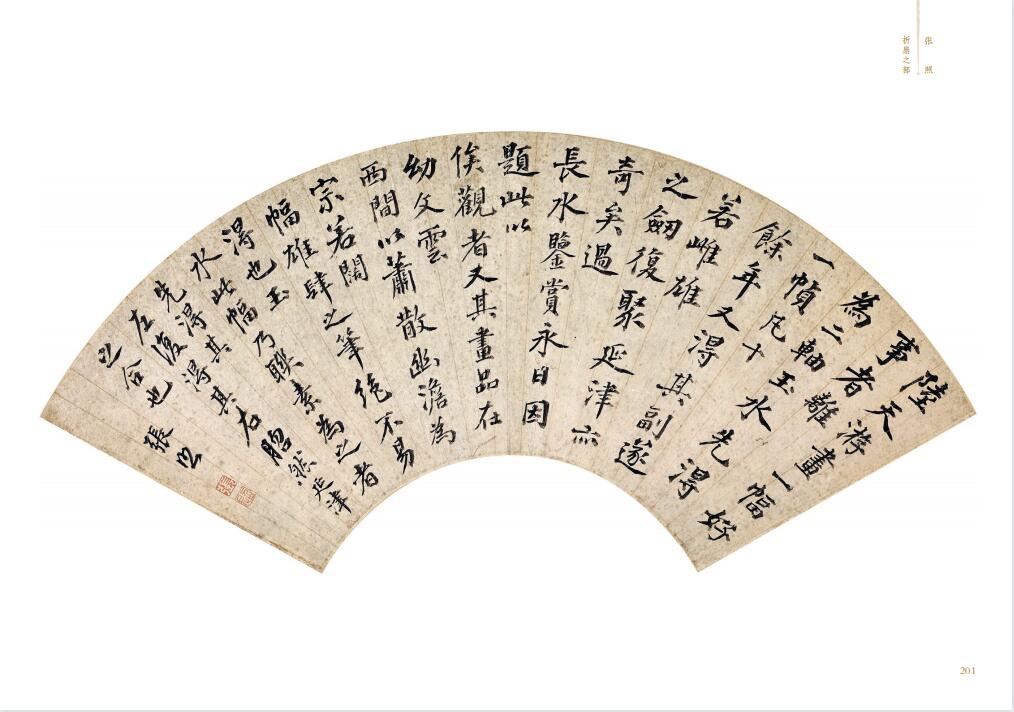 张照
折扇之部
陸天游畫一幅好
事者離
為二軸玉水先得
一幀凡十
餘年又得其副遂
若雌雄
之劒復聚延津亦
奇矣過
長水鑒賞永日因
題此以
俟觀者又其畫品在
幼文雲
西間以蕭散幽澹為
宗若闊
幅雄肆之筆絶不易
得也玉
水此幅乃聯素為之者
先得其
左復得其右脗然延津
之合也
張照
201